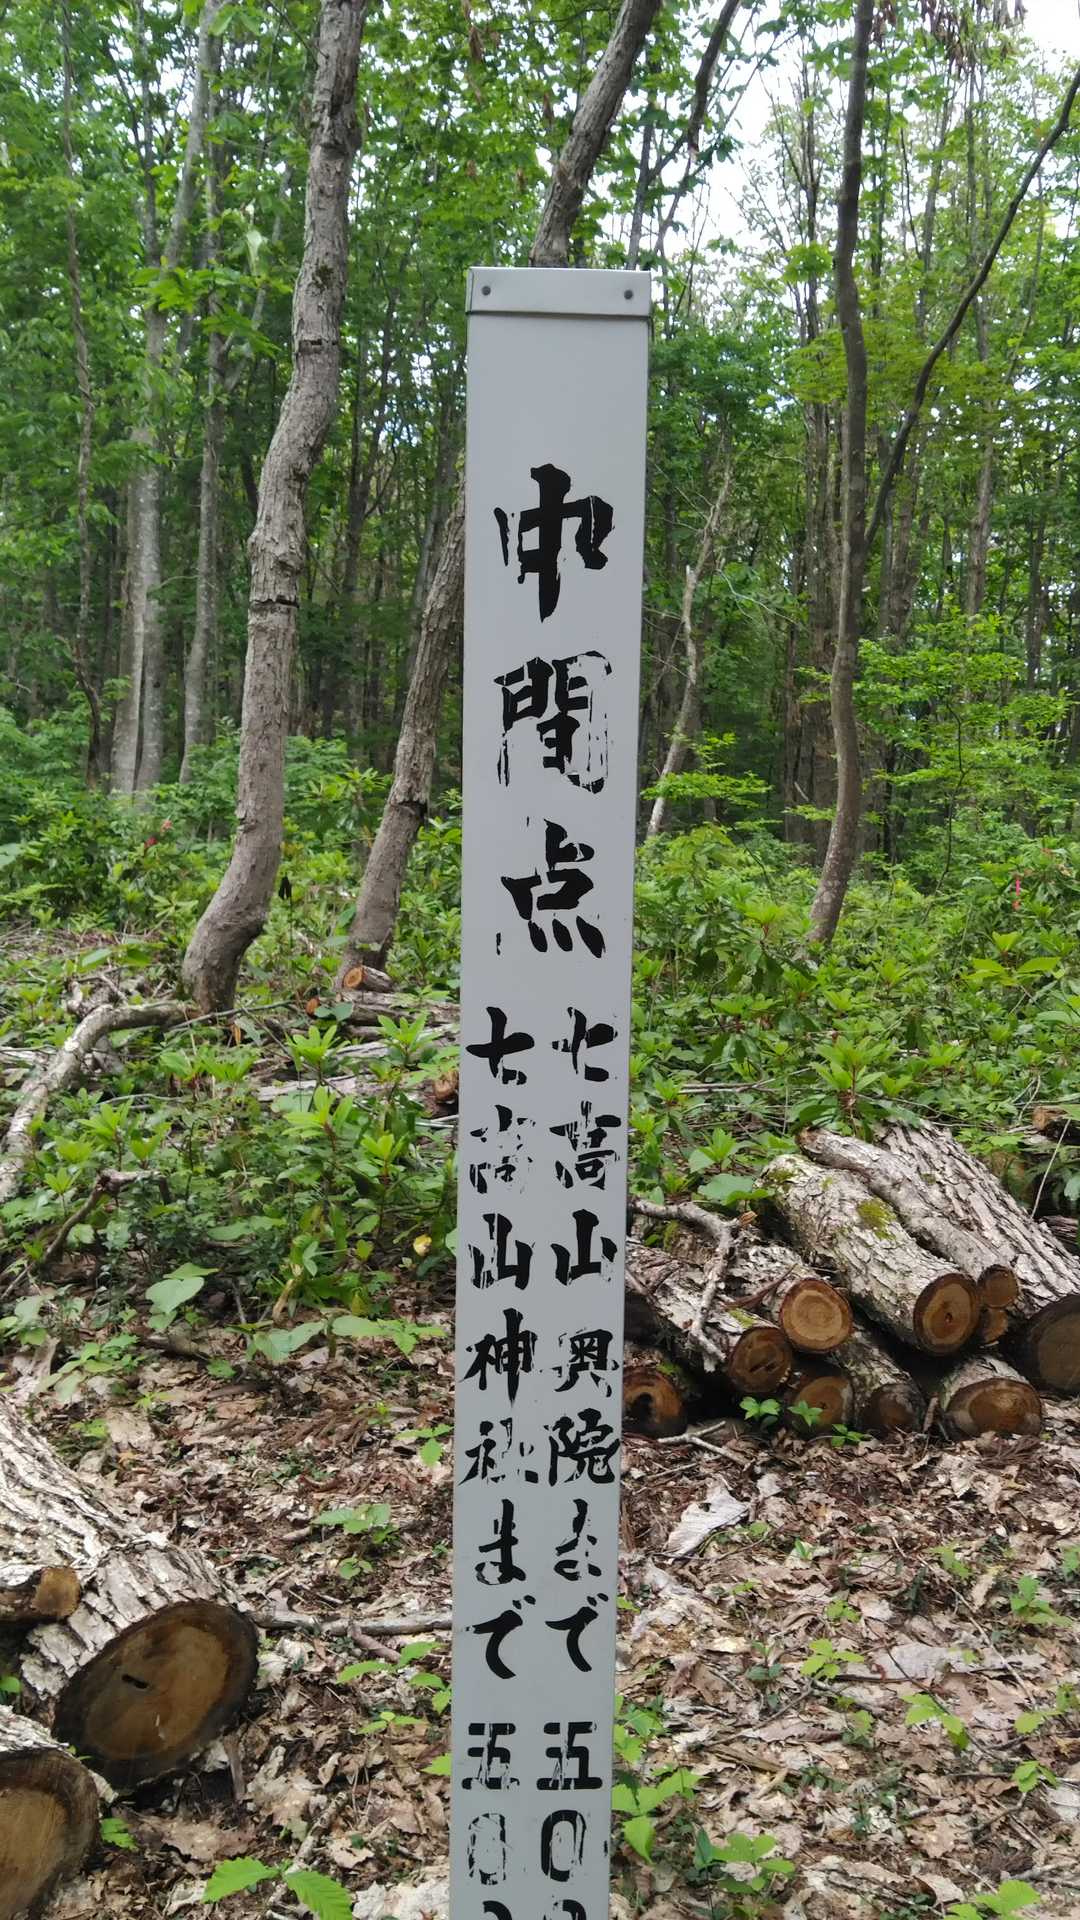 中間点
七高山奥院まで五〇
七高山神社まで五〇